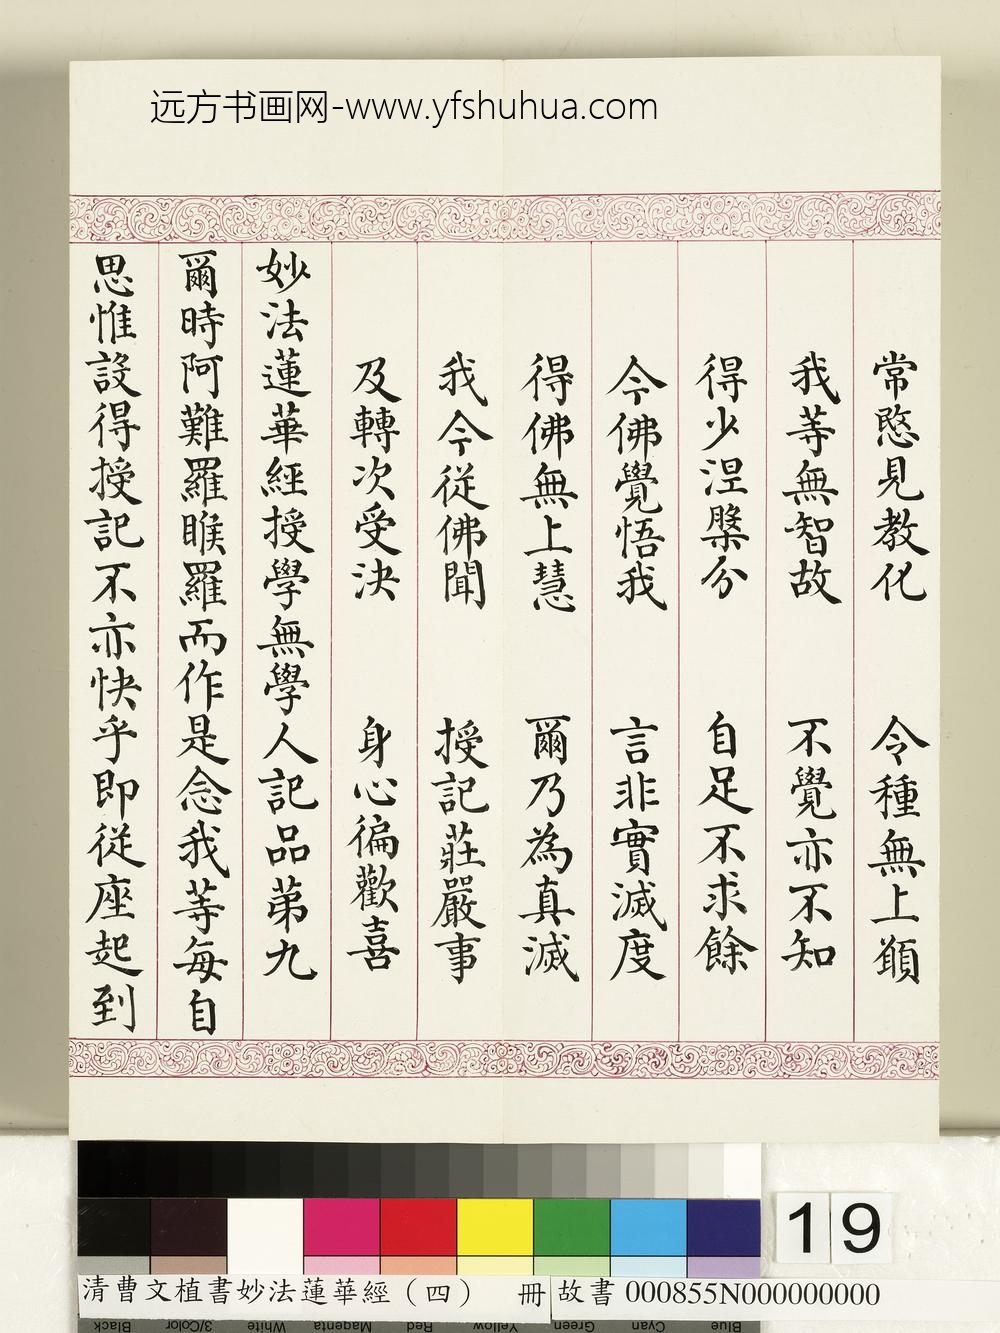 远方书画网-www.yfshuhua.com
常愍見教化 令種無上願
我等無智故 不覺亦不知
得少涅槃分 自足不求餘
今佛覺悟我 言非實滅度
得佛無上慧 爾乃為真滅
我今從佛聞 授記莊嚴事
及轉次受決 身心徧歡喜
妙法蓮華經授學無學人記品第九
爾時阿難羅睺羅而作是念我等每自
思惟設得授記不亦快乎即從座起到
19
清曹文植書妙法蓮華經（四） 冊 故書 000855N000000000
Black 3/Color White Magenta Red Yellow Green Cyan Blue